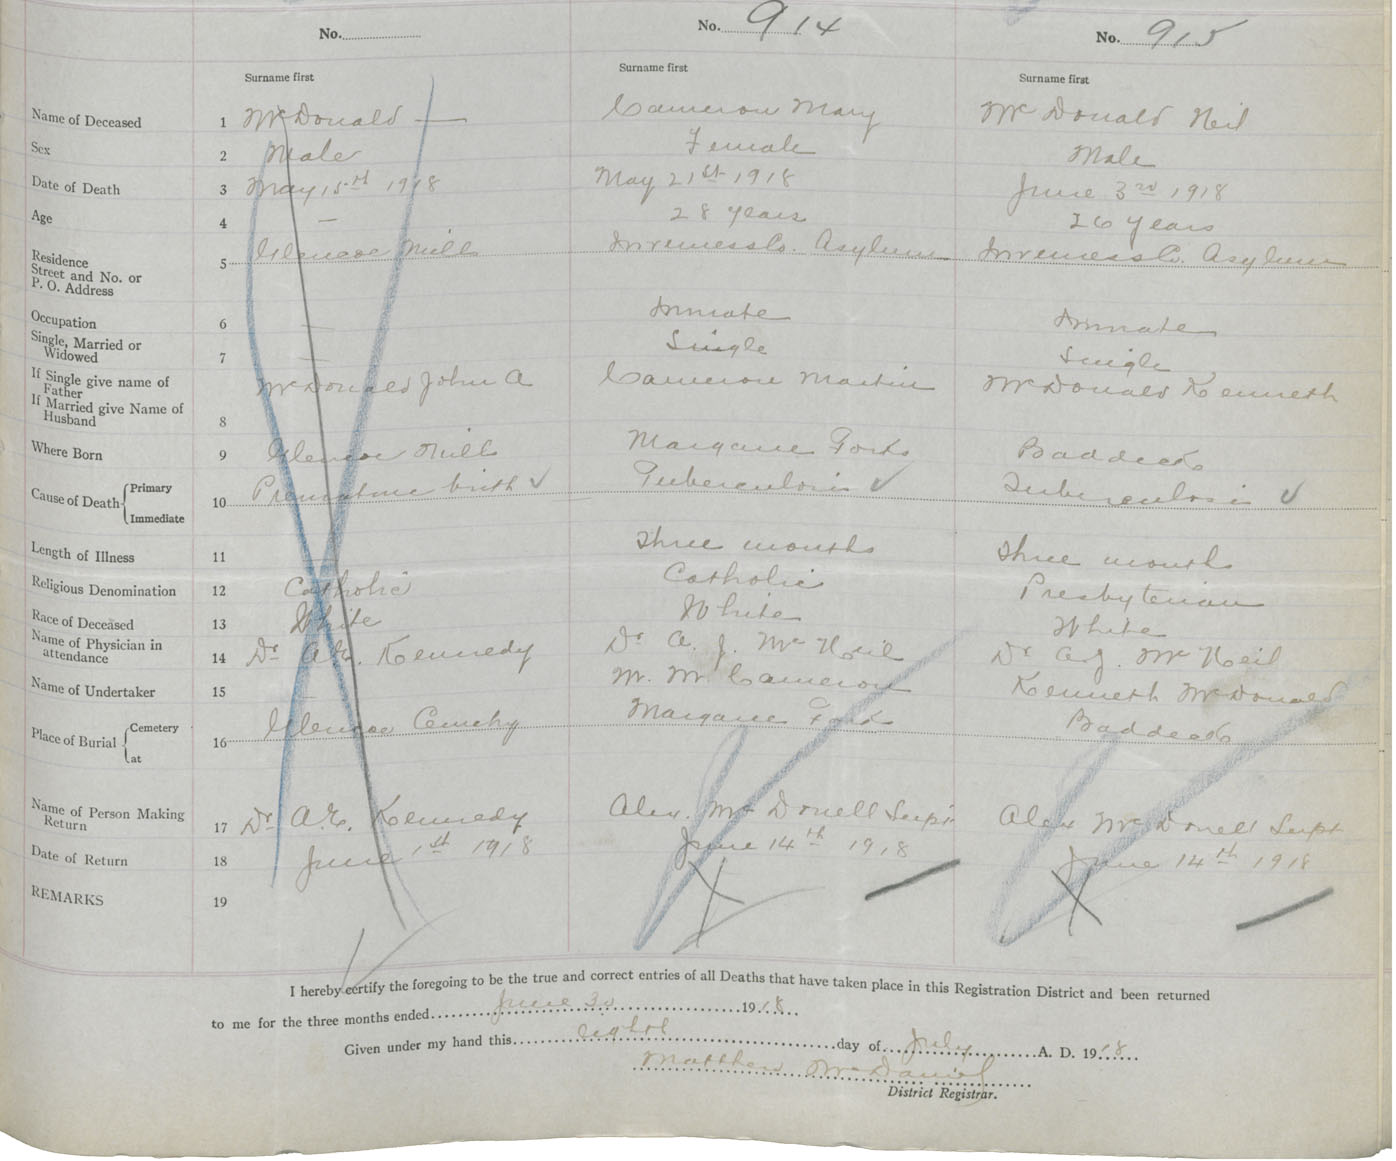 No. .......... No. 914 No. 915
Surname first Surname first Surname first
Name of Deceased 1 McDonald — Cameron Mary McDonald Neil
Sex 2 Male Female Male
Date of Death 3 May 15th 1918 May 21st 1918 June 3rd 1918
Age 4 — 28 years 26 years
Residence
Street and No. or
P. O. Address 5 Glencoe Mills Inverness Co. Asylum Inverness Co. Asylum
Occupation 6 — Inmate Inmate
Single, Married or
Widowed 7 — Single Single
If Single give name of
Father McDonald John A Cameron Martin McDonald Kenneth
If Married give Name of
Husband 8
Where Born 9 Glencoe Mills Margaree Forks Baddeck
Cause of Death { Primary Premature birth ✓ Tuberculosis ✓ Tuberculosis ✓
Immediate 10
Length of Illness 11 Three months Three months
Religious Denomination 12 Catholic Catholic Presbyterian
Race of Deceased 13 White White White
Name of Physician in
attendance 14 Dr A.E. Kennedy Dr A. J. McNeil Dr A.J. McNeil
Name of Undertaker 15 — M. M. Cameron Kenneth McDonald
Place of Burial { Cemetery
at 16 Glencoe Cemetry Margaree Forks Baddeck
Name of Person Making
Return 17 Dr A.E. Kennedy Alex. McDonell Supt Alex McDonell Supt
Date of Return 18 June 1st 1918 June 14th 1918 June 14th 1918
REMARKS 19
I hereby certify the foregoing to be the true and correct entries of all Deaths that have taken place in this Registration District and been returned
to me for the three months ended June 30 1918
Given under my hand this eighth day of July A. D. 1918
Matthew McDaniel
District Registrar.